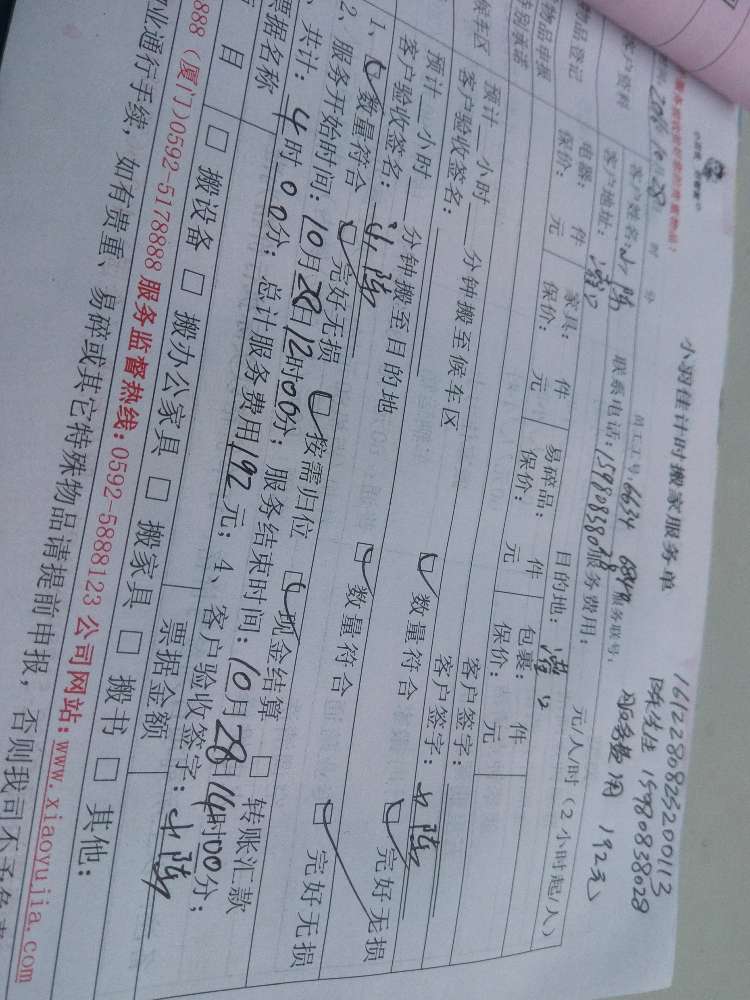 161228082520011 3
陈先生 15980838028
服务费用 192元
小羽佳计时搬家服务单
员工工号:6634 服务联号:
2016 10月28日 时 分
客户资料 客户姓名:小陈 联系电话:15980838028 服务费用: 元/人/时(2小时起/人)
客户地址:灌口 目的地:灌口
物品登记 电器: 件 家具: 件 易碎品: 件 包裹: 件
物品申报 保价: 元 保价: 元 保价: 元 保价: 元
特别承诺 客户签字:
候车区 预计__小时__分钟搬至候车区 客户签字:小陈
客户验收签名: 数量符合 完好无损
预计__小时__分钟搬至目的地
客户验收签名:小陈 数量符合 完好无损
1、数量符合 完好无损 按需归位 现金结算 转账汇款
2、服务开始时间:10月28日12时00分;服务结束时间:10月28日14时00分;
共计:4时00分;总计服务费用192元;4、客户验收签字:小陈
票据名称 票据金额
项目 搬设备 搬办公家具 搬家具 搬书 其他:
888(厦门)0592-5178888 服务监督热线:0592-5888123 公司网站:www.xiaoyujia.com
业通行手续,如有贵重、易碎或其它特殊物品请提前申报,否则我司不予负责